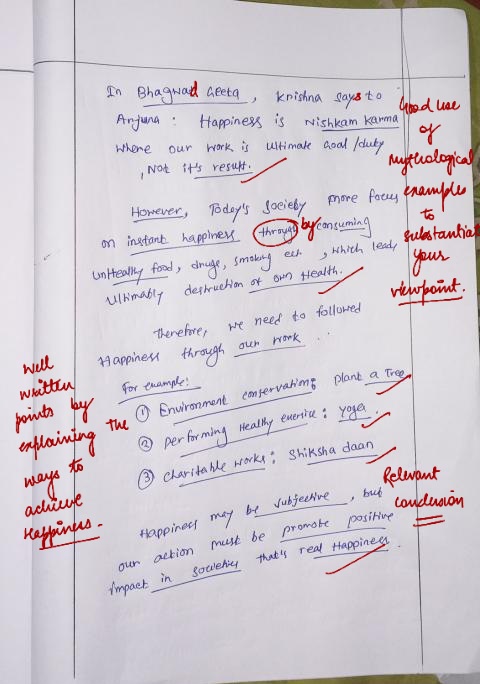 In Bhagwad Geeta, Krishna says to
Arjuna: Happiness is Nishkam Karma
where our work is ultimate Goal/duty
, Not it's result.
Good use
of
mythological
examples
to
substantiate
your
viewpoint.
However, Today's society more focus
on instant happiness through by consuming
unHealthy food, drugs, smoking ect., which leads
Ultimably destruction of own Health.
Therefore, we need to followed
Happiness through our work..
For example:
① Environment conservation: Plant a Tree
② Performing Healthy exerice: Yoga
③ Charitable works: Shiksha daan
Well
written
points by
explaining the
ways to
achieve
Happiness.
Happiness may be subjective, but
our action must be promote positive
impact in societies that's real Happiness.
Relevant
conclusion